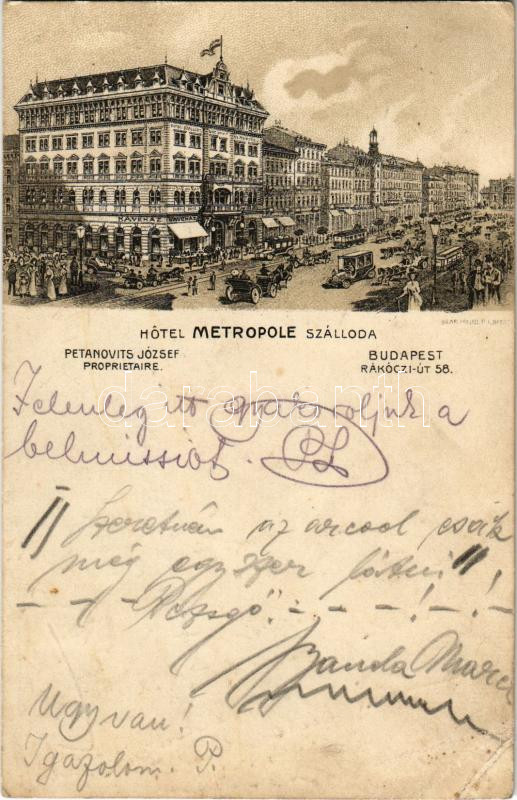 KÁVÉHÁZ
HÔTEL METROPOLE SZÁLLODA
PETANOVITS JÓZSEF
PROPRIETAIRE.
BUDAPEST
RÁKÓCZI-ÚT 58.
Jelenleg itt gyakoroljuk a
belmissiót.
"Szeretném az arcod csak
még egyszer látni"!
- - - Pezsgő. - - - ! - !
Banda Marci
Ugy van!
Igazolom. P.
darabanth.com